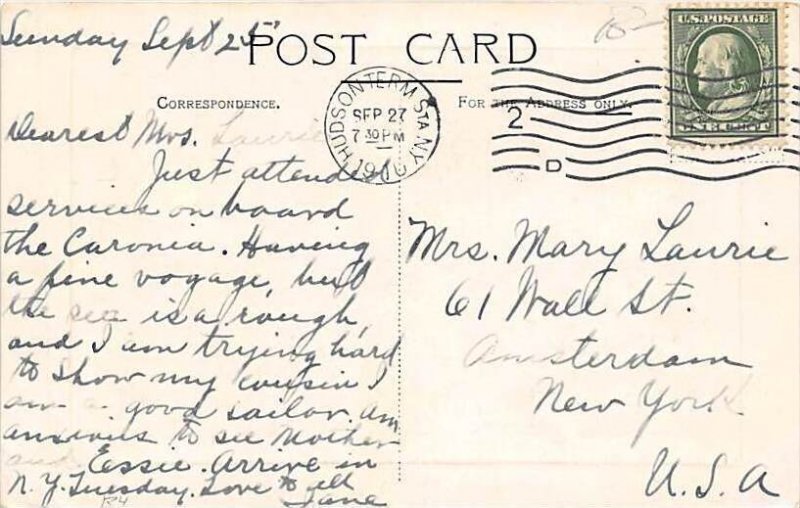 Sunday Sept 25
POST CARD
CORRESPONDENCE.
FOR THE ADDRESS ONLY.
U.S. POSTAGE
HUDSON TERM. STA. N.Y.
SEP 27
7 30 PM
2
D
Dearest Mrs. Laurie
Just attended
services on board
the Caronia. Having
a fine voyage, but
the sea is a rough,
and I am trying hard
to show my cousin I
am a good sailor. Am
anxious to see Mother
and Essie. Arrive in
N.Y. Tuesday. Love to all
Jane
Mrs. Mary Laurie
61 Wall St.
Amsterdam
New York
U.S.A